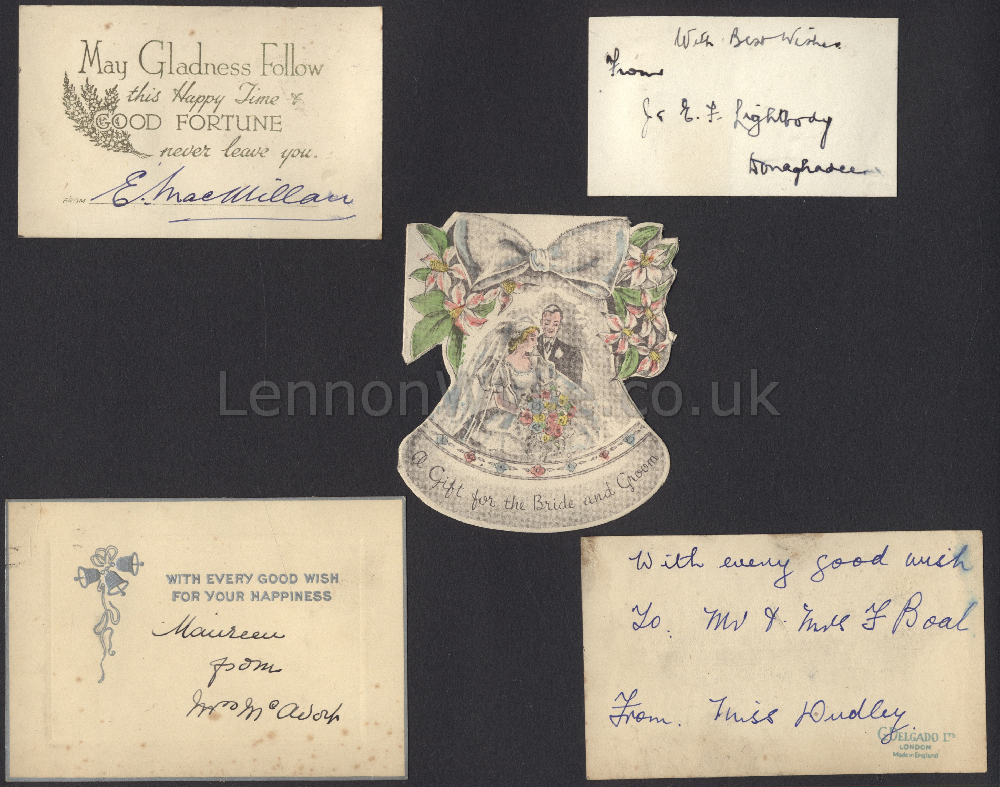 May Gladness Follow
this Happy Time &
GOOD FORTUNE
never leave you.
FROM E. MacMillan
With Best Wishes
From
J & E. F. Lightbody
Donaghadee
A Gift for the Bride and Groom
WITH EVERY GOOD WISH
FOR YOUR HAPPINESS
Maureen
from
Mrs Mc
With every good wish
To. Mr & Mrs F Boal
From. Miss Dudley
C. DELGADO LTD
LONDON
Made in England
LennonWylie.co.uk